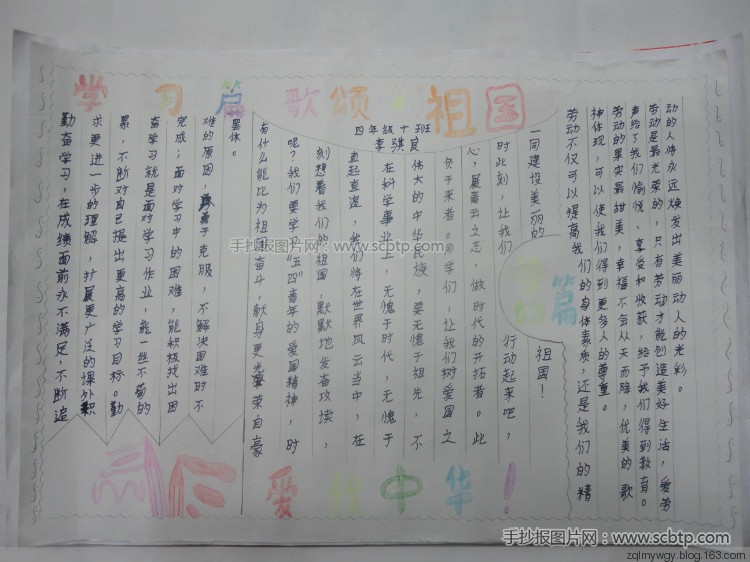 学习篇
歌颂祖国
四年级十班
李骐良
勤奋学习，在成绩面前永不满足，不断追
求更进一步的理解，扩展更广泛的课外积
累，不断对自己提出更高的学习目标。勤
奋学习就是面对学习作业，能一丝不苟的
完成；面对学习中的困难，能积极找出困
难的原因，勇于克服，不解决困难时不
罢休。
有什么能比为祖国奋斗，献身更光荣自豪
呢？我们要学习“五四”青年的爱国精神，时
刻想着我们的祖国，默默地发奋攻读，
直起直追，我们将在世界风云当中，在
在科学事业上，无愧于时代，无愧于
伟大的中华民族，要无愧于祖先，不
负于来者。同学们，让我们树爱国之
心，展青云之志，做时代的开拓者。此
时此刻，让我们行动起来吧，
一同建设美丽的祖国！
劳动篇
劳动不仅可以提高我们的身体素质，还是我们的精
神体现，可以使我们得到更多人的尊重。
劳动的果实最甜美，幸福不会从天而降，优美的歌
声给了我们愉悦、享受和收获，给予我们得到教育。
劳动是最光荣的，只有劳动才能创造美好生活，爱劳
动的人将永远焕发出美丽动人的光彩。
爱中华！
手抄报图片网：www.scbtp.com
手抄报图片网：www.scbtp.com
zqlmywgy.blog.163.com